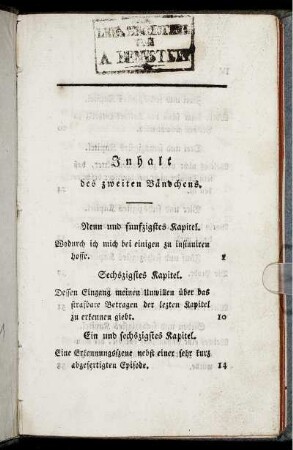 A
Inhalt
des zweiten Bändchens.
Neun und funfzigstes Kapitel.
Wodurch ich mich bei einigen zu insinuiren
hoffe. 1
Sechszigstes Kapitel.
Dessen Eingang meinen Unwillen über das
strafbare Betragen der lezten Kapitel
zu erkennen giebt. 10
Ein und sechszigstes Kapitel.
Eine Erkennungsszene nebst einer sehr kurz
abgefertigten Episode. 14